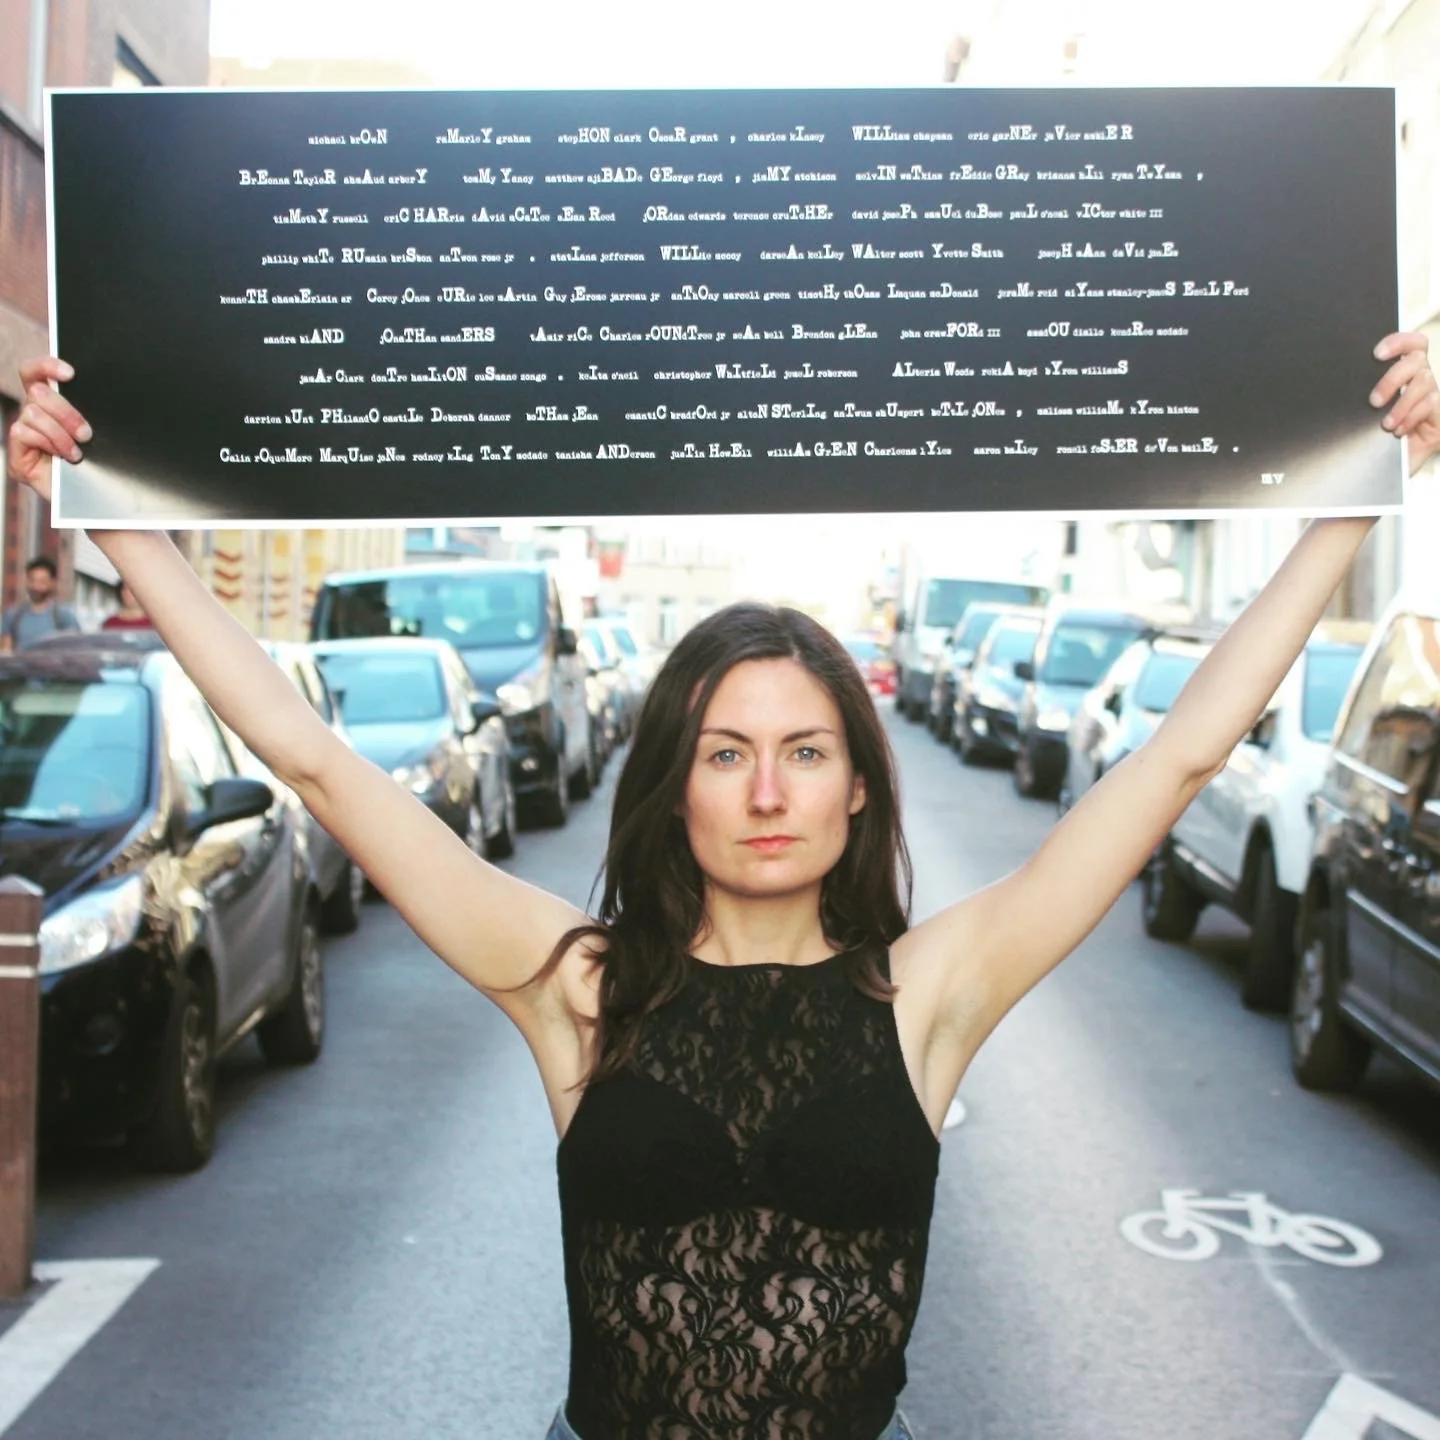 michael brOwN raMarleY graham stepHON clark OscaR grant , charles kInsey WILLiam chapman eric garNEr jaVier ambER
BrEonna TayloR ahmAud arberY tomMy Yancy matthew ajiBADe GEorge floyd , jimMY atchison melvIN waTkins frEddie GRay brianna hIll ryan TwYman ,
timMothY russell eriC HARris dAvid mCaTee sEan Reed jORdan edwards terence cruTcHEr david josePh samUel duBose pauL o'neal vICtor white III
phillip whiTe RUmain briSbon anTwon rose jr . atatIana jefferson WILLie mccoy darmeAn kelLey WAlter scott Yvette Smith josepH mAnn daVid jonEs
kenneTH chambErlain sr Corey jOnes oURie lee mArtin Guy jErome jarreau jr anThOny marcell green timotHy thOmas LaquanmcDonald jeraMe reid aiYana stanley-joneS EzeLL Ford
sandra blAND jOnaTHan sandERS tAmir riCe Charles rOUNdTree jr seAn bell Brendon gLEnn john crawFORd III amadOU diallo kendRec mcdade
jamAr Clark donTre hamILtON ouSmane zongo . keIta o'neil christopher WhItfieLd jemeL roberson ALteria Woods rekiA boyd bYron williamS
darrien hUnt PHilandO castiLe Deborah danner boTHam jEan cuantiC bradfOrd jr altoN STerlIng anTwun shUmpert boTtL.jONes , malissa williaMs kYron hinton
Calin rOqueMore MarqUise joNes rodney kIng TonY mcdade tanisha ANDerson jusTin HowEll williAm GrEeN Charleena lYles aaron baIley ronell foStER deVon bailEy .
mv